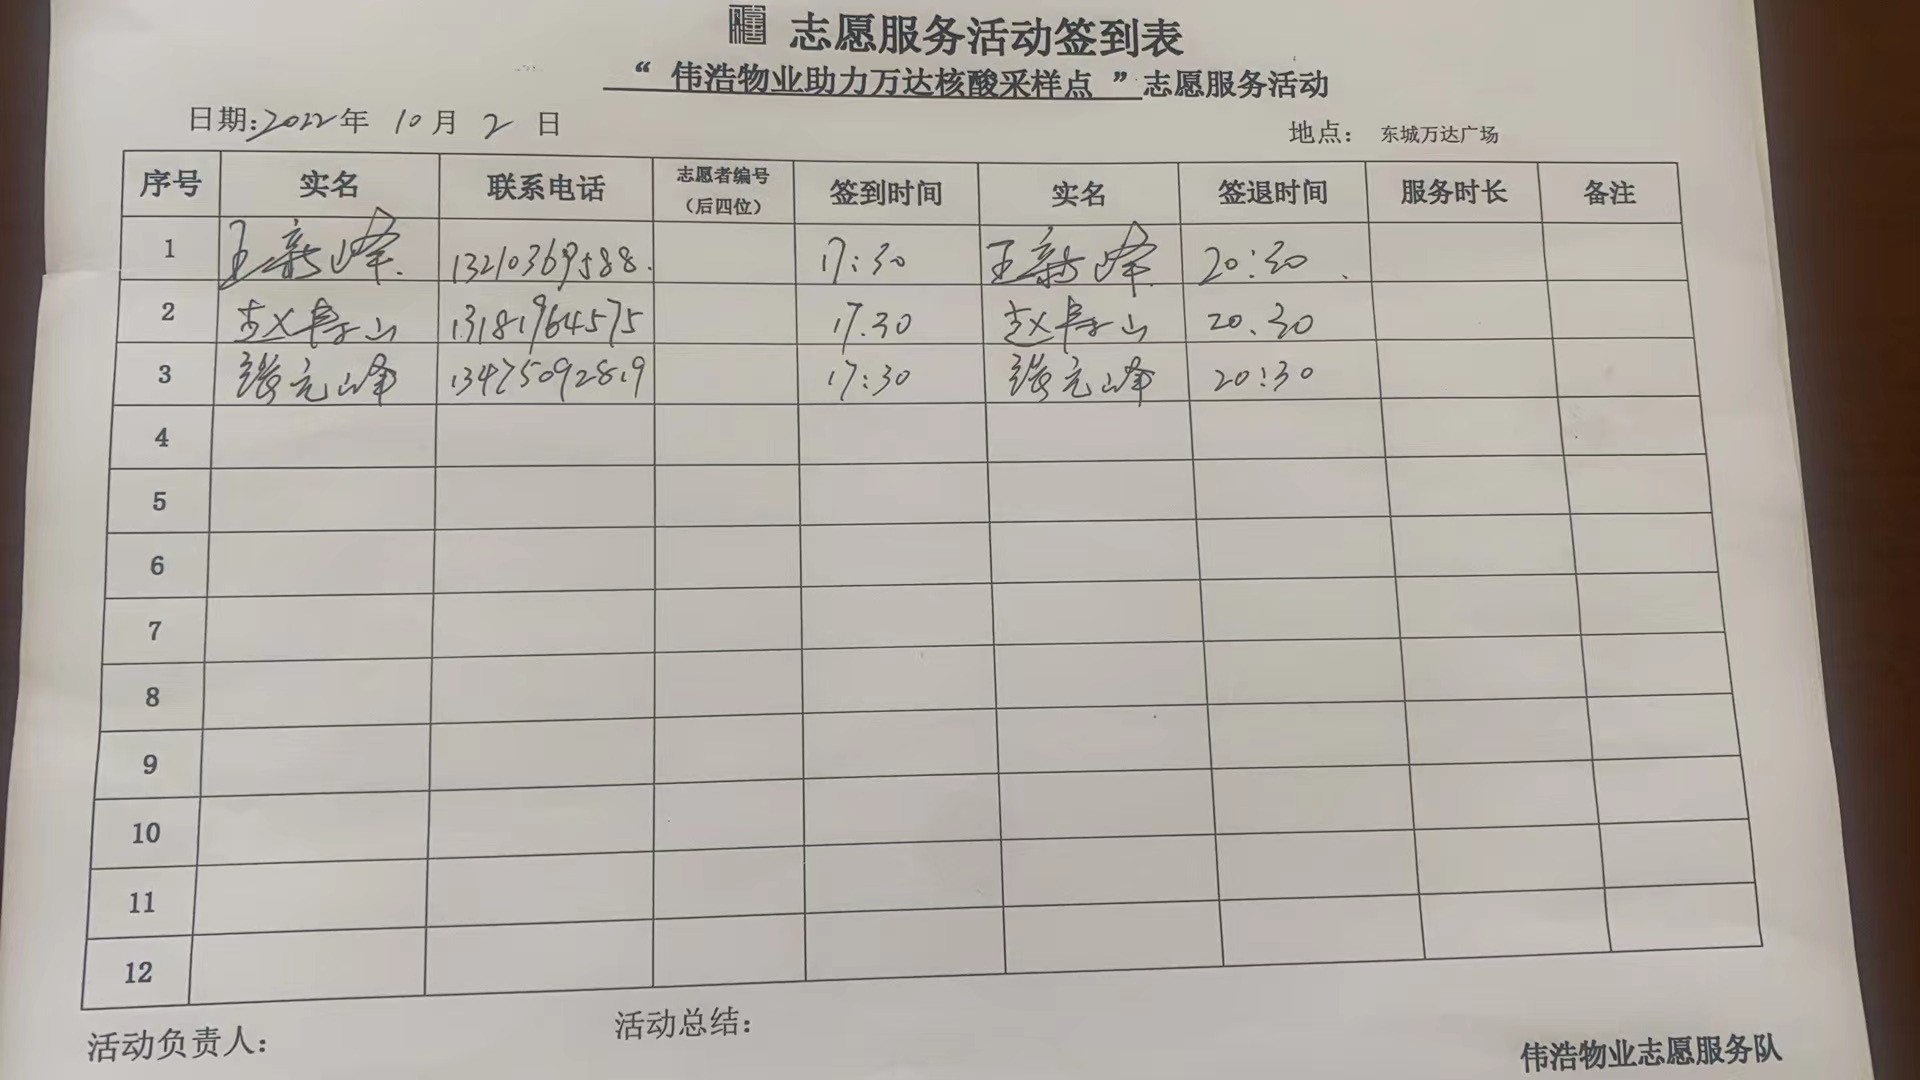 志愿服务活动签到表
“ 伟浩物业助力万达核酸采样点 ”志愿服务活动
日期:2022年 10月 2 日 地点: 东城万达广场
序号 实名 联系电话 志愿者编号（后四位） 签到时间 实名 签退时间 服务时长 备注
1 王新峰. 13210369588. 17:30 王新峰. 20:30.
2 赵寿山 13181964575 17.30 赵寿山 20.30
3 张元峰 13475092819 17:30 张元峰 20:30
4
5
6
7
8
9
10
11
12
活动负责人: 活动总结:
伟浩物业志愿服务队